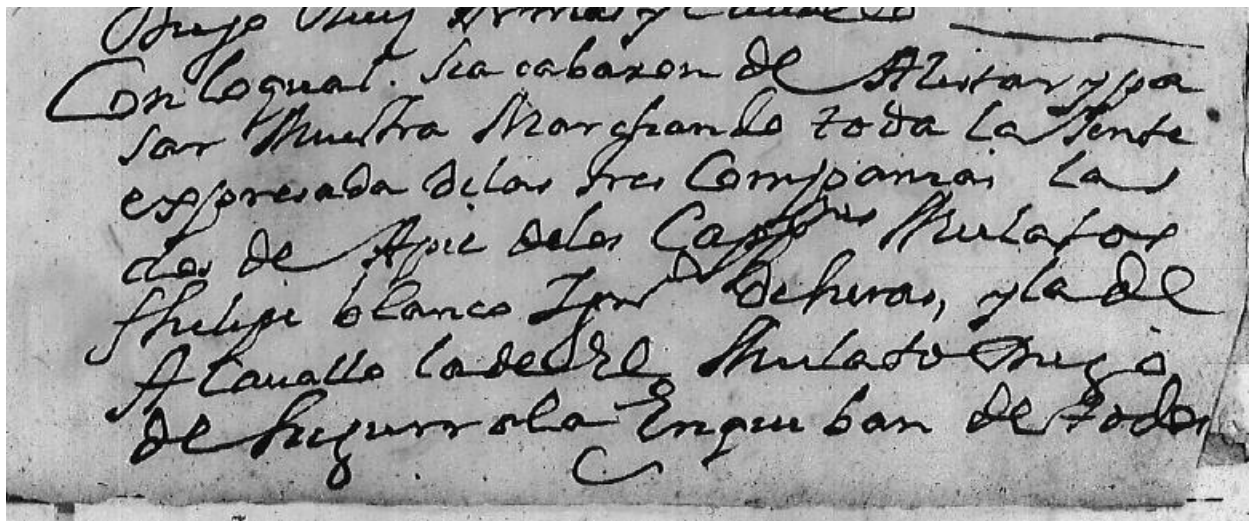 Diego Ruiz Armas y Cauallo
Con loqual. sea cabaron de Alistar y pa
sar Muestra Marchando toda la Jente
expresada delas tres Companias las
dos de Apie delos Cappnes Mulatos
Phelipe blanco Y Juo de heras, y la de
A Cauallo la de el Mulato Diego
de Sugurrola En que ban de todos